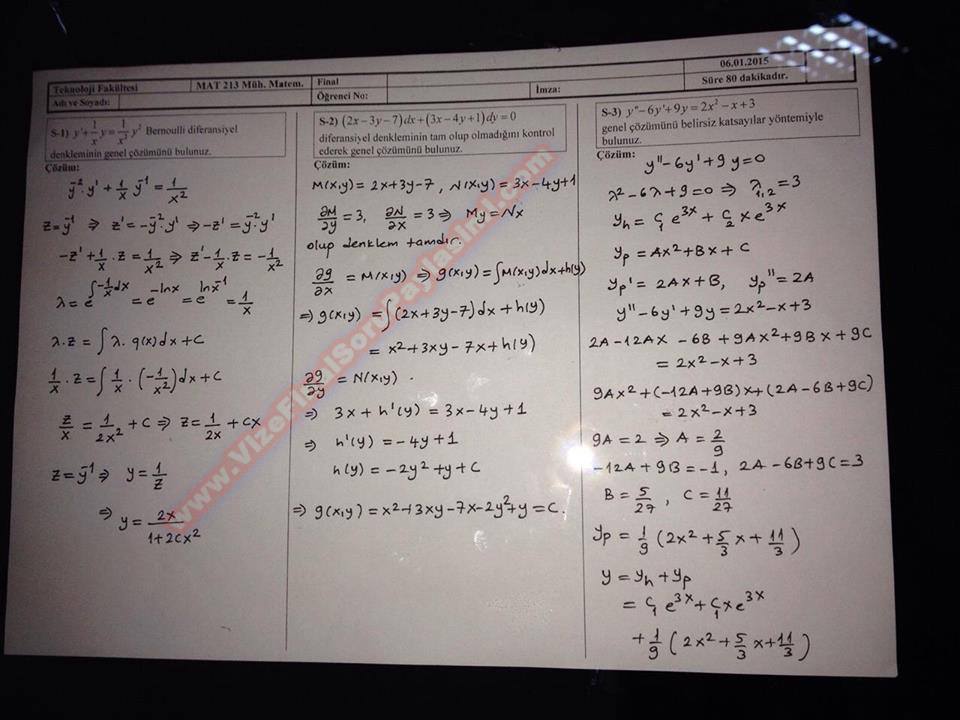 Teknoloji Fakültesi MAT 213 Müh. Matem. Final 06.01.2015
Adı ve Soyadı: Öğrenci No: İmza: Süre 80 dakikadır.
S-1) y'+1/x y=1/x² y² Bernoulli diferansiyel
denkleminin genel çözümünü bulunuz.
Çözüm:
y⁻²·y' + 1/x y⁻¹ = 1/x²
z=y⁻¹ ⇒ z'=-y⁻²·y' ⇒ -z'=y⁻²·y'
-z'+1/x·z=1/x² ⇒ z'-1/x·z=-1/x²
λ=e^(∫-1/x dx) = e^(-lnx) = e^(lnx⁻¹) = 1/x
λ·z=∫λ·q(x)dx+C
1/x·z=∫1/x·(-1/x²)dx+C
z/x=1/2x²+C ⇒ z=1/2x+Cx
z=y⁻¹ ⇒ y=1/z
⇒ y=2x/1+2Cx²
S-2) (2x-3y-7)dx+(3x-4y+1)dy=0
diferansiyel denkleminin tam olup olmadığını kontrol
ederek genel çözümünü bulunuz.
Çözüm:
M(x,y)=2x+3y-7, N(x,y)=3x-4y+1
∂M/∂y=3, ∂N/∂x=3 ⇒ My=Nx
olup denklem tamdır.
∂g/∂x=M(x,y) ⇒ g(x,y)=∫M(x,y)dx+h(y)
⇒ g(x,y)=∫(2x+3y-7)dx+h(y)
=x²+3xy-7x+h(y)
∂g/∂y=N(x,y).
⇒ 3x+h'(y)=3x-4y+1
⇒ h'(y)=-4y+1
h(y)=-2y²+y+C
⇒ g(x,y)=x²+3xy-7x-2y²+y=C.
S-3) y''-6y'+9y=2x²-x+3
genel çözümünü belirsiz katsayılar yöntemiyle
bulunuz.
Çözüm:
y''-6y'+9y=0
λ²-6λ+9=0 ⇒ λ₁,₂=3
yh=C₁e³ˣ+C₂xe³ˣ
yp=Ax²+Bx+C
yp'=2Ax+B, yp''=2A
y''-6y'+9y=2x²-x+3
2A-12Ax-6B+9Ax²+9Bx+9C
=2x²-x+3
9Ax²+(-12A+9B)x+(2A-6B+9C)
=2x²-x+3
9A=2 ⇒ A=2/9
-12A+9B=-1, 2A-6B+9C=3
B=5/27, C=11/27
yp=1/9(2x²+5/3x+11/3)
y=yh+yp
=C₁e³ˣ+C₁xe³ˣ
+1/9(2x²+5/3x+11/3)
www.VizeFinalSoruPaylasimi.com